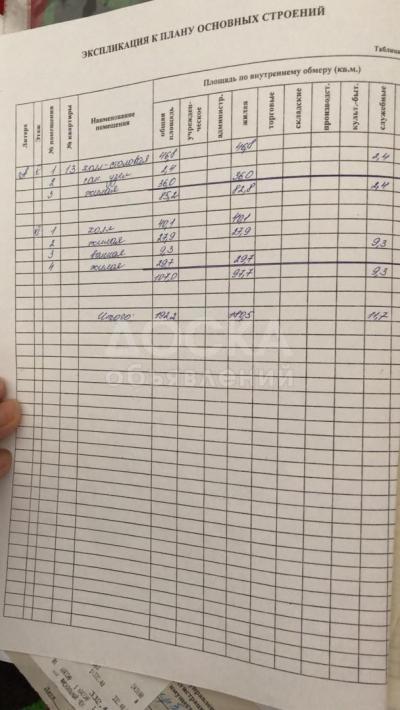 ЭКСПЛИКАЦИЯ К ПЛАНУ ОСНОВНЫХ СТРОЕНИЙ
Таблица
Площадь по внутреннему обмеру (кв.м.)
Литера Этаж № помещения № квартиры Наименование помещения общая площадь учрежден-ческое администр. жилая торговые складские производст. культ.-быт. служебные
1 13 холл-столовая 46,8 46,8
2 сан. узел 2,4 2,4
3 жилая 36,0 36,0
85,2 82,8 2,4
1 холл 40,1 40,1
2 жилая 27,9 27,9
3 ванная 9,3 9,3
4 жилая 29,7 29,7
107,0 97,7 9,3
Итого: 192,2 180,5 11,7
ДОСКА
объявлений